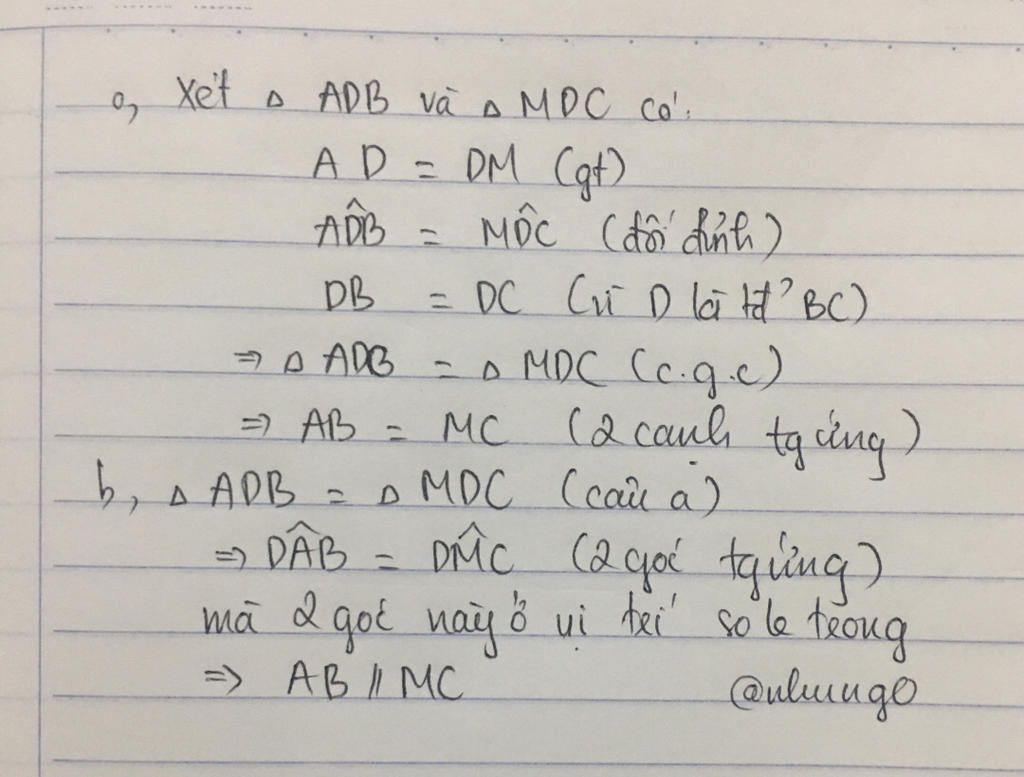 a, Xét △ ADB và △ MDC có:
AD = DM (gt)
AD̂B = MD̂C (đối đỉnh)
DB = DC (vì D là tđ' BC)
⇒ △ ADB = △ MDC (c.g.c)
⇒ AB = MC (2 cạnh tg ứng)
b, △ ADB = △ MDC (câu a)
⇒ DÂB = DM̂C (2 góc tg ứng)
mà 2 góc này ở vị trí so le trong
⇒ AB // MC